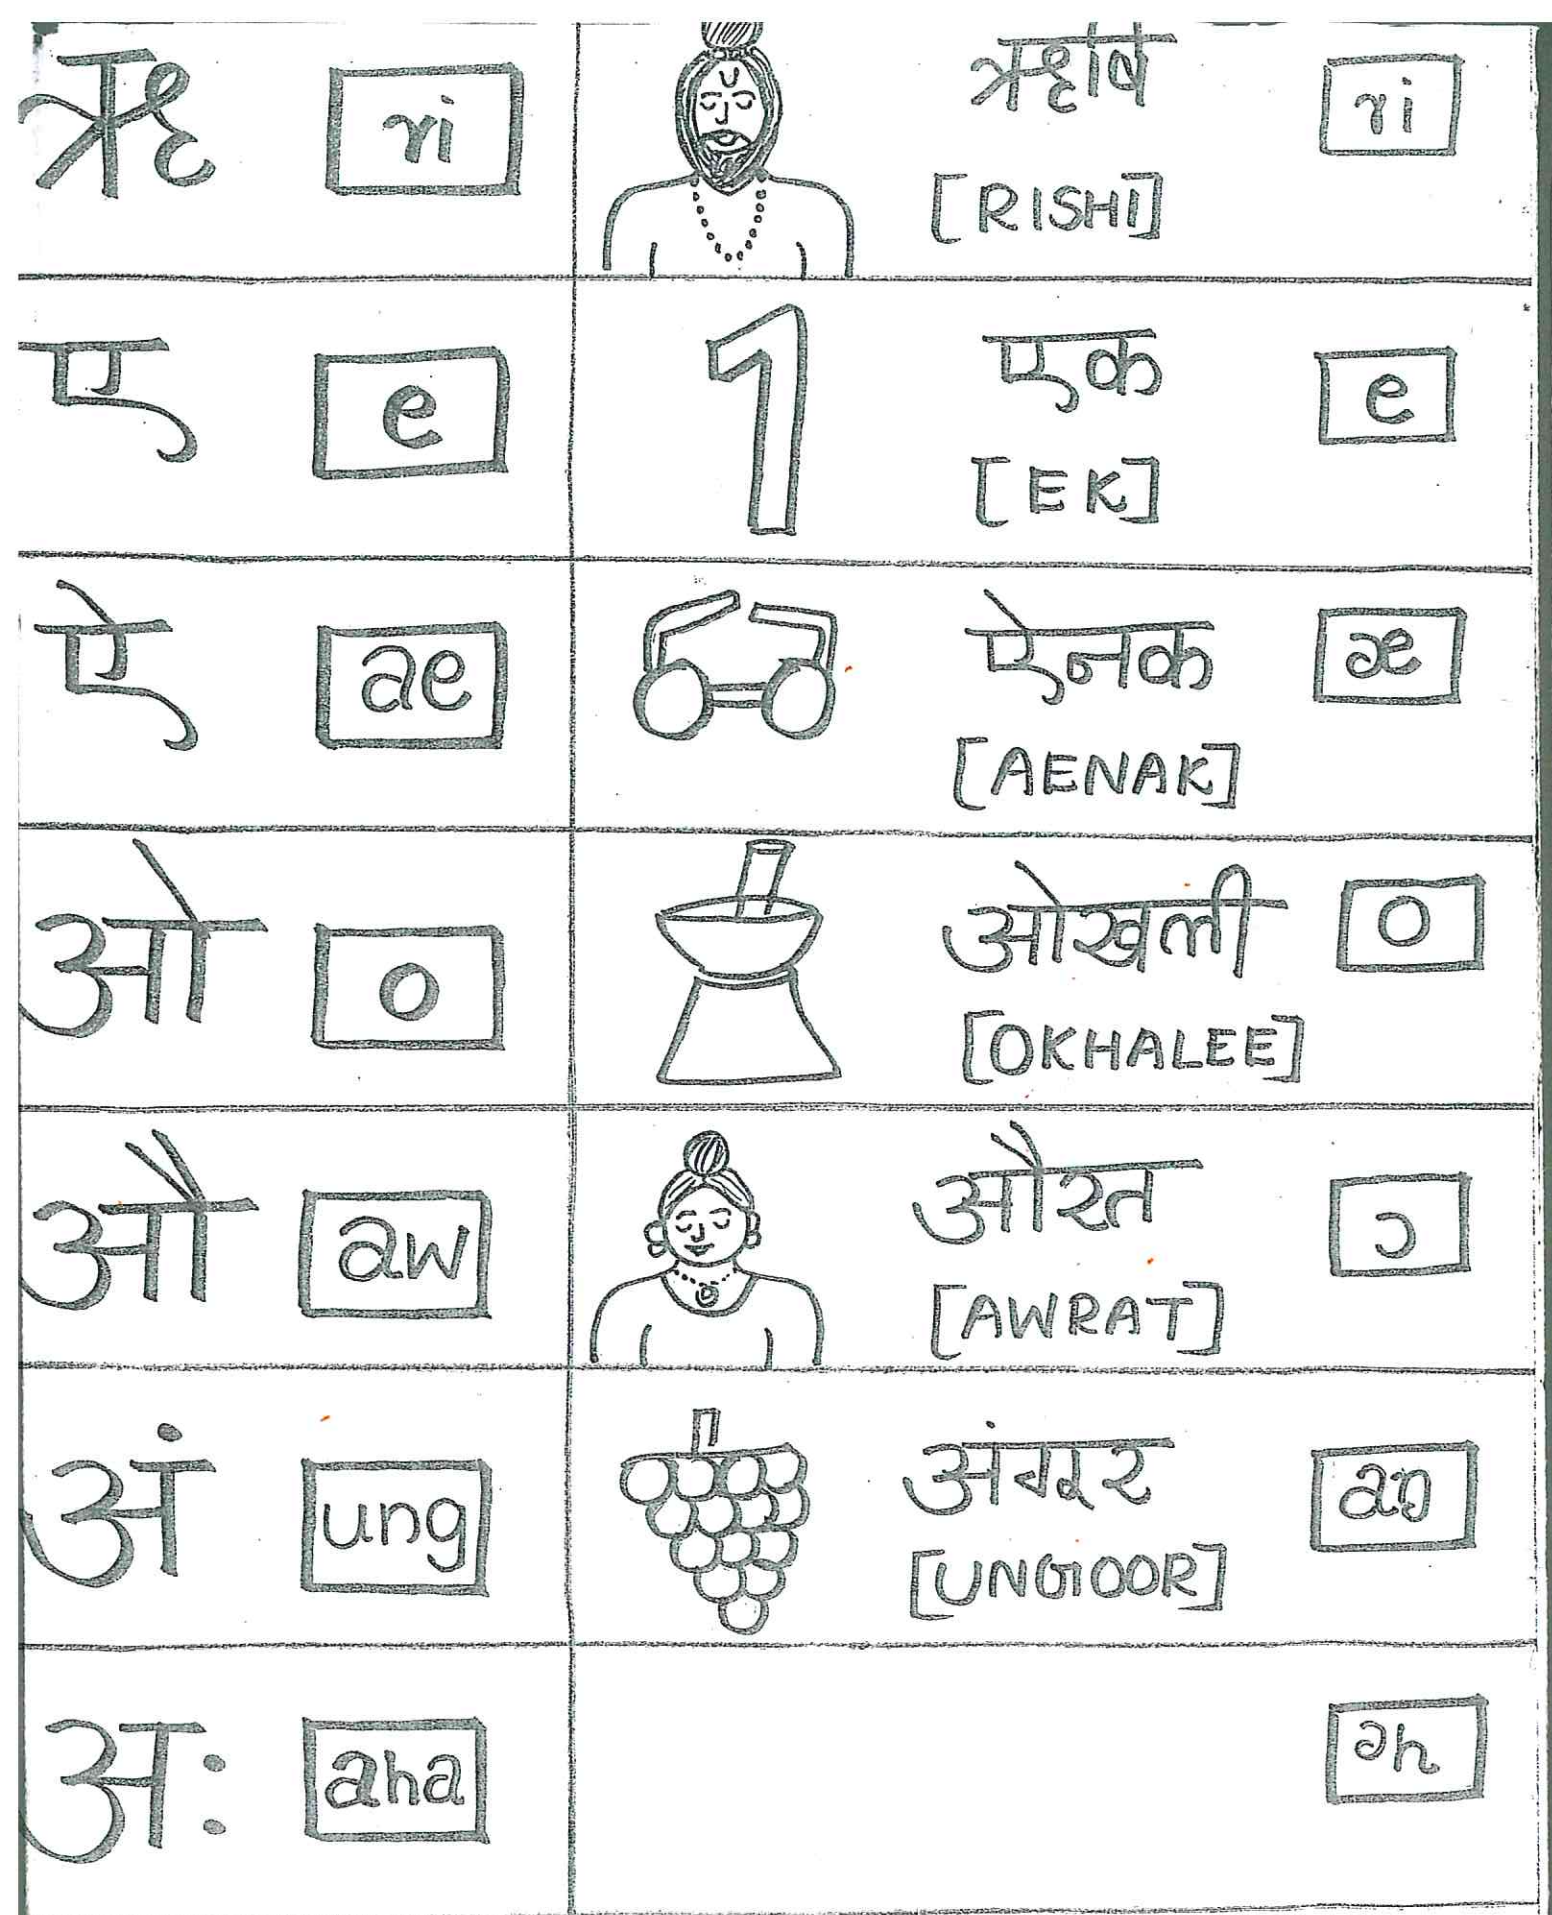 ऋ ri ऋषि ri
[RISHI]
ए e एक e
[EK]
ऐ ae ऐनक æ
[AENAK]
ओ o ओखली o
[OKHALEE]
औ aw औरत ɔ
[AWRAT]
अं ung अंगूर
[UNGOOR]
अः aha əh